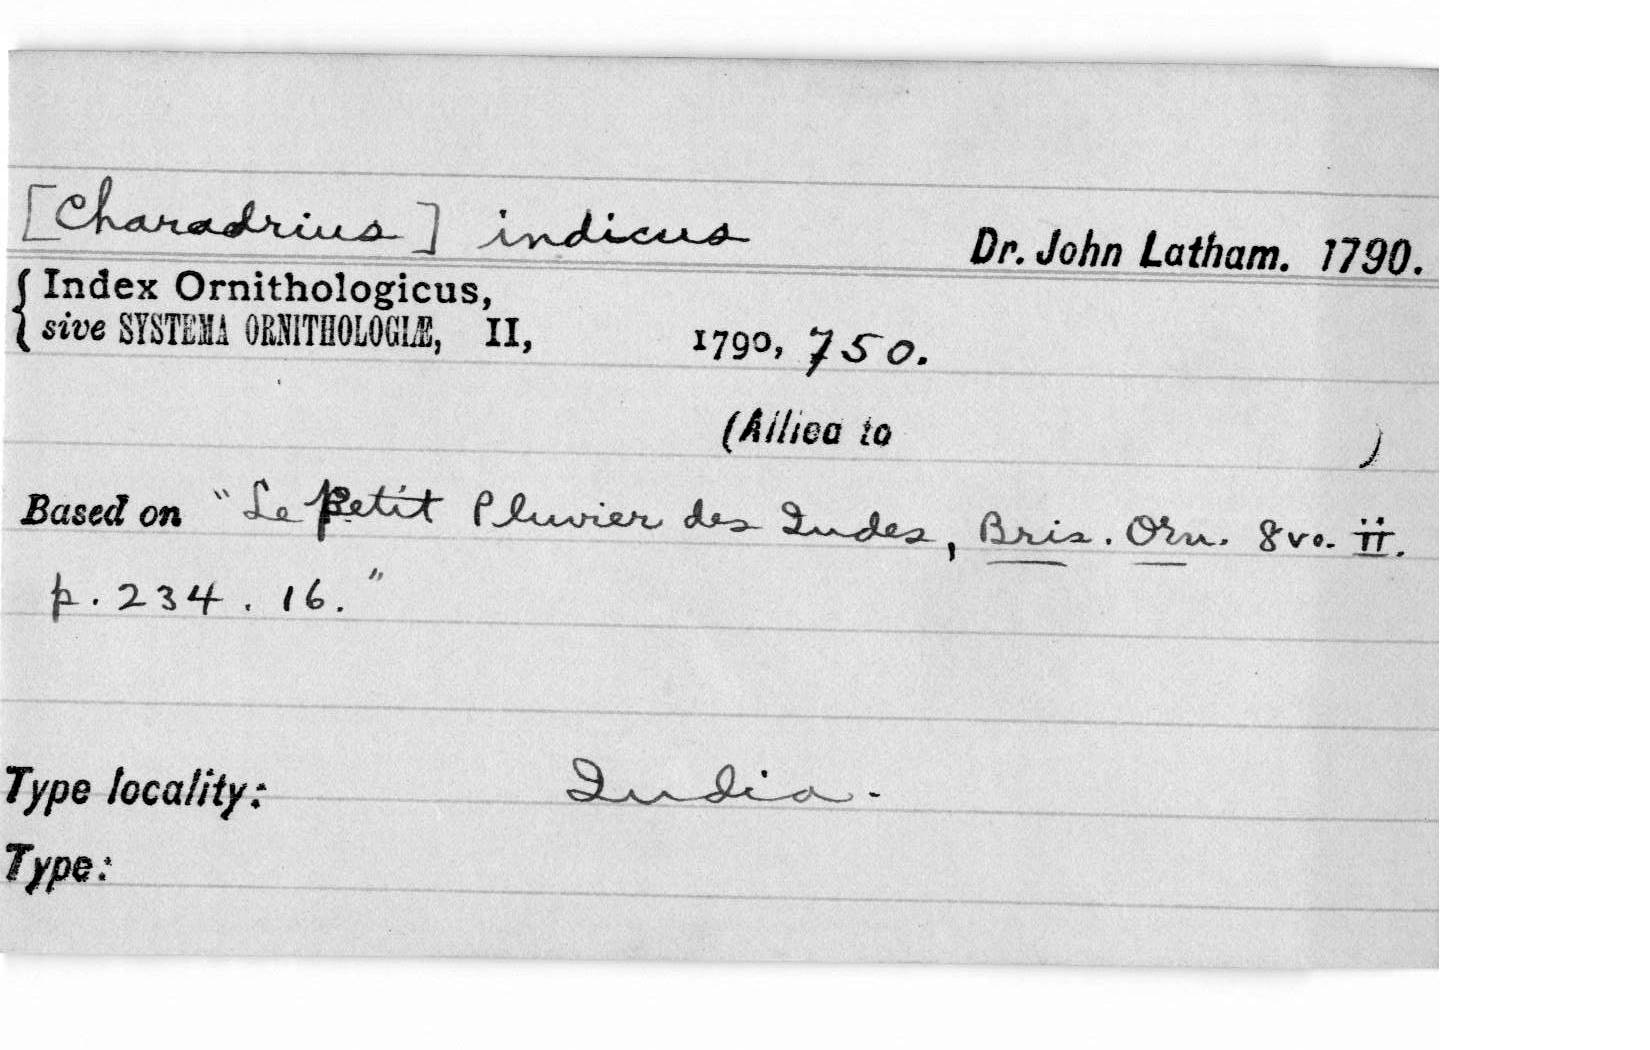 [Charadrius] indicus Dr. John Latham. 1790.
Index Ornithologicus,
sive SYSTEMA ORNITHOLOGIÆ, II, 1790, 750.
(Allied to )
Based on "Le Petit Pluvier des Indes, Bris. Orn. 8vo. ii.
p. 234. 16."
Type locality: India.
Type: